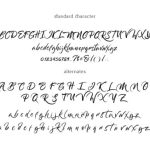 standard character
ABCDEFGHIJKLMNOPQRSTUVWXYZ
abcdefghijklmnopqrstuvwxyz
0123456789
alternates
ABCDEFGHIJKLMNO
PQRSTUVWXYZ
abcdefghijklmnopqrstuvwxyz
abcdefghijklmnopqrstuvwxyz